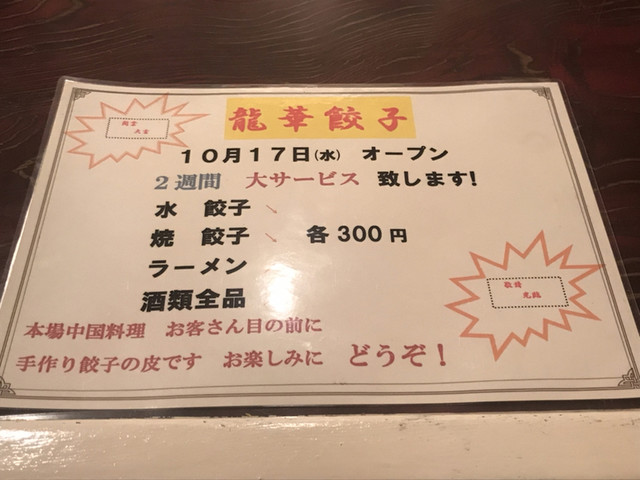 龍華餃子
10月17日(水) オープン
2週間 大サービス 致します!
水 餃子
焼 餃子 各300円
ラーメン
酒類全品
敬請
光臨
本場中国料理 お客さん目の前に
手作り餃子の皮です お楽しみに どうぞ!